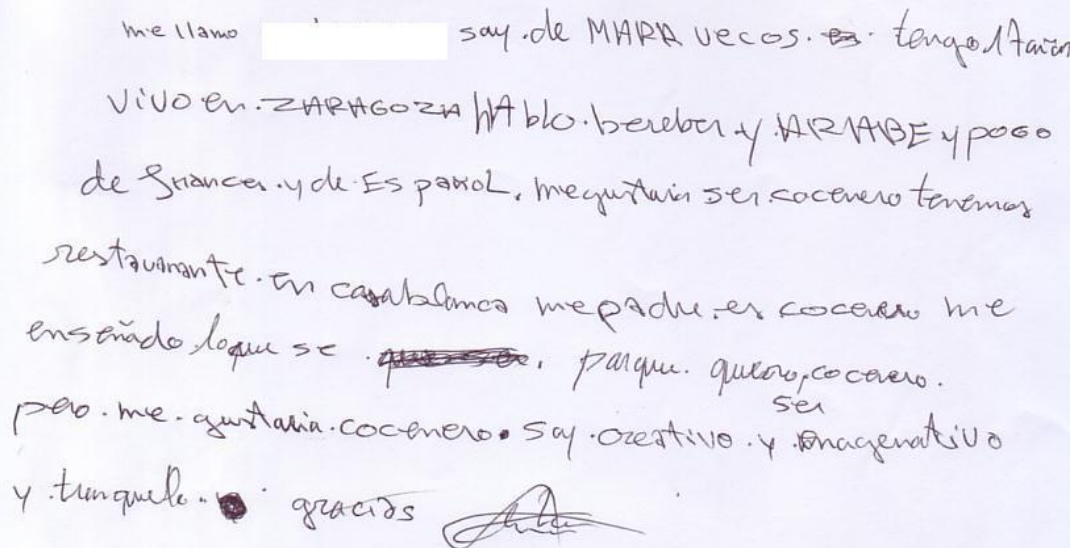 me llamo say. de MARA vecos. tengo 17 años
vivo en. ZARAGOZA HAblo. bereber y ARABE y poco
de francer. y de. ES pañoL. megustaria ser cocenero tenemos
restaurante. en casablanca mepadre. es cocenero me
enseñado loque se. parque. quiero, cocenero.
ser
pero. me. gustaria. cocenero. say. creativo. y. imagenativo
y. tranquelo. gracias